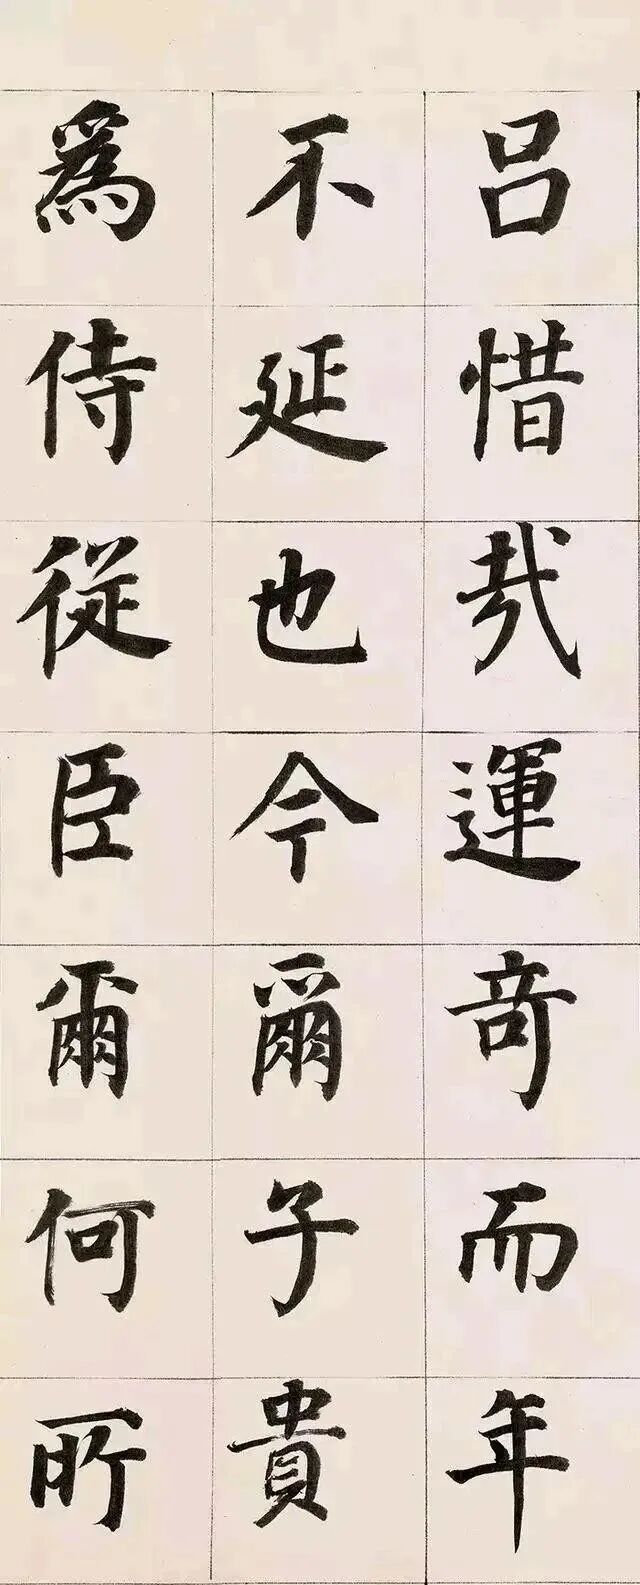 吕惜哉運竒而年
不延也今爾子貴
爲侍從臣爾何所